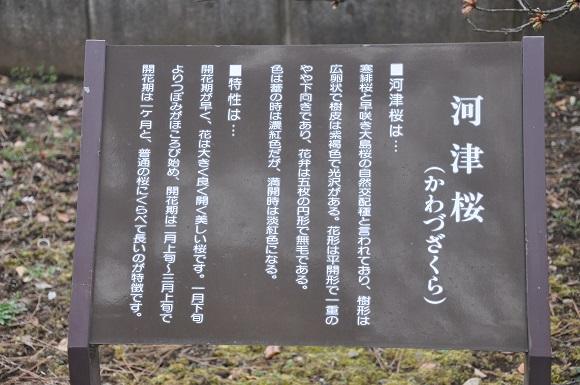 河津桜
(かわづざくら)
■河津桜は…
寒緋桜と早咲き大島桜の自然交配種と言われており、樹形は
広卵状で樹皮は紫褐色で光沢がある。花形は平開形で一重の
やや下向きであり、花弁は五枚の円形で無毛である。
色は蕾の時は濃紅色だが、満開時は淡紅色になる。
■特性は…
開花期が早く、花は大きく良く開く美しい桜です。一月下旬
よりつぼみがほころび始め、開花期は二月上旬〜三月上旬で
開花期は一ケ月と、普通の桜にくらべて長いのが特徴です。